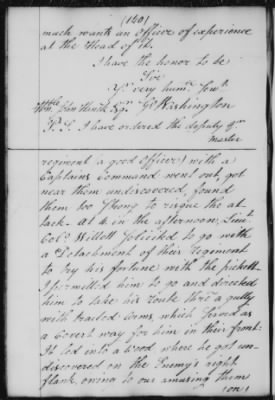 (140)
much wants an Officer of experience
at the Head of it.
I have the honor to be
Sir
Yr very humle Servt
Honble John Hancock Esqr Go Washington
P.S. I have ordered the deputy Qr
Master
regiment a good Officer) with a
Captains Command went out, got
near them undiscovered, found
them too strong to risque the at-
tack. At 4 in the afternoon, Lieut
Colo Willett solicited to go with
a Detachment of their Regiment
to try his fortune with the pickett
I permitted him to go and directed
him to take his route thro a gully
with traced worms which served as
a Covert way for him in their front.
It led into a Wood where he got un-
discovered on the Enemy's right
flank, owing to our amusing them
(on)